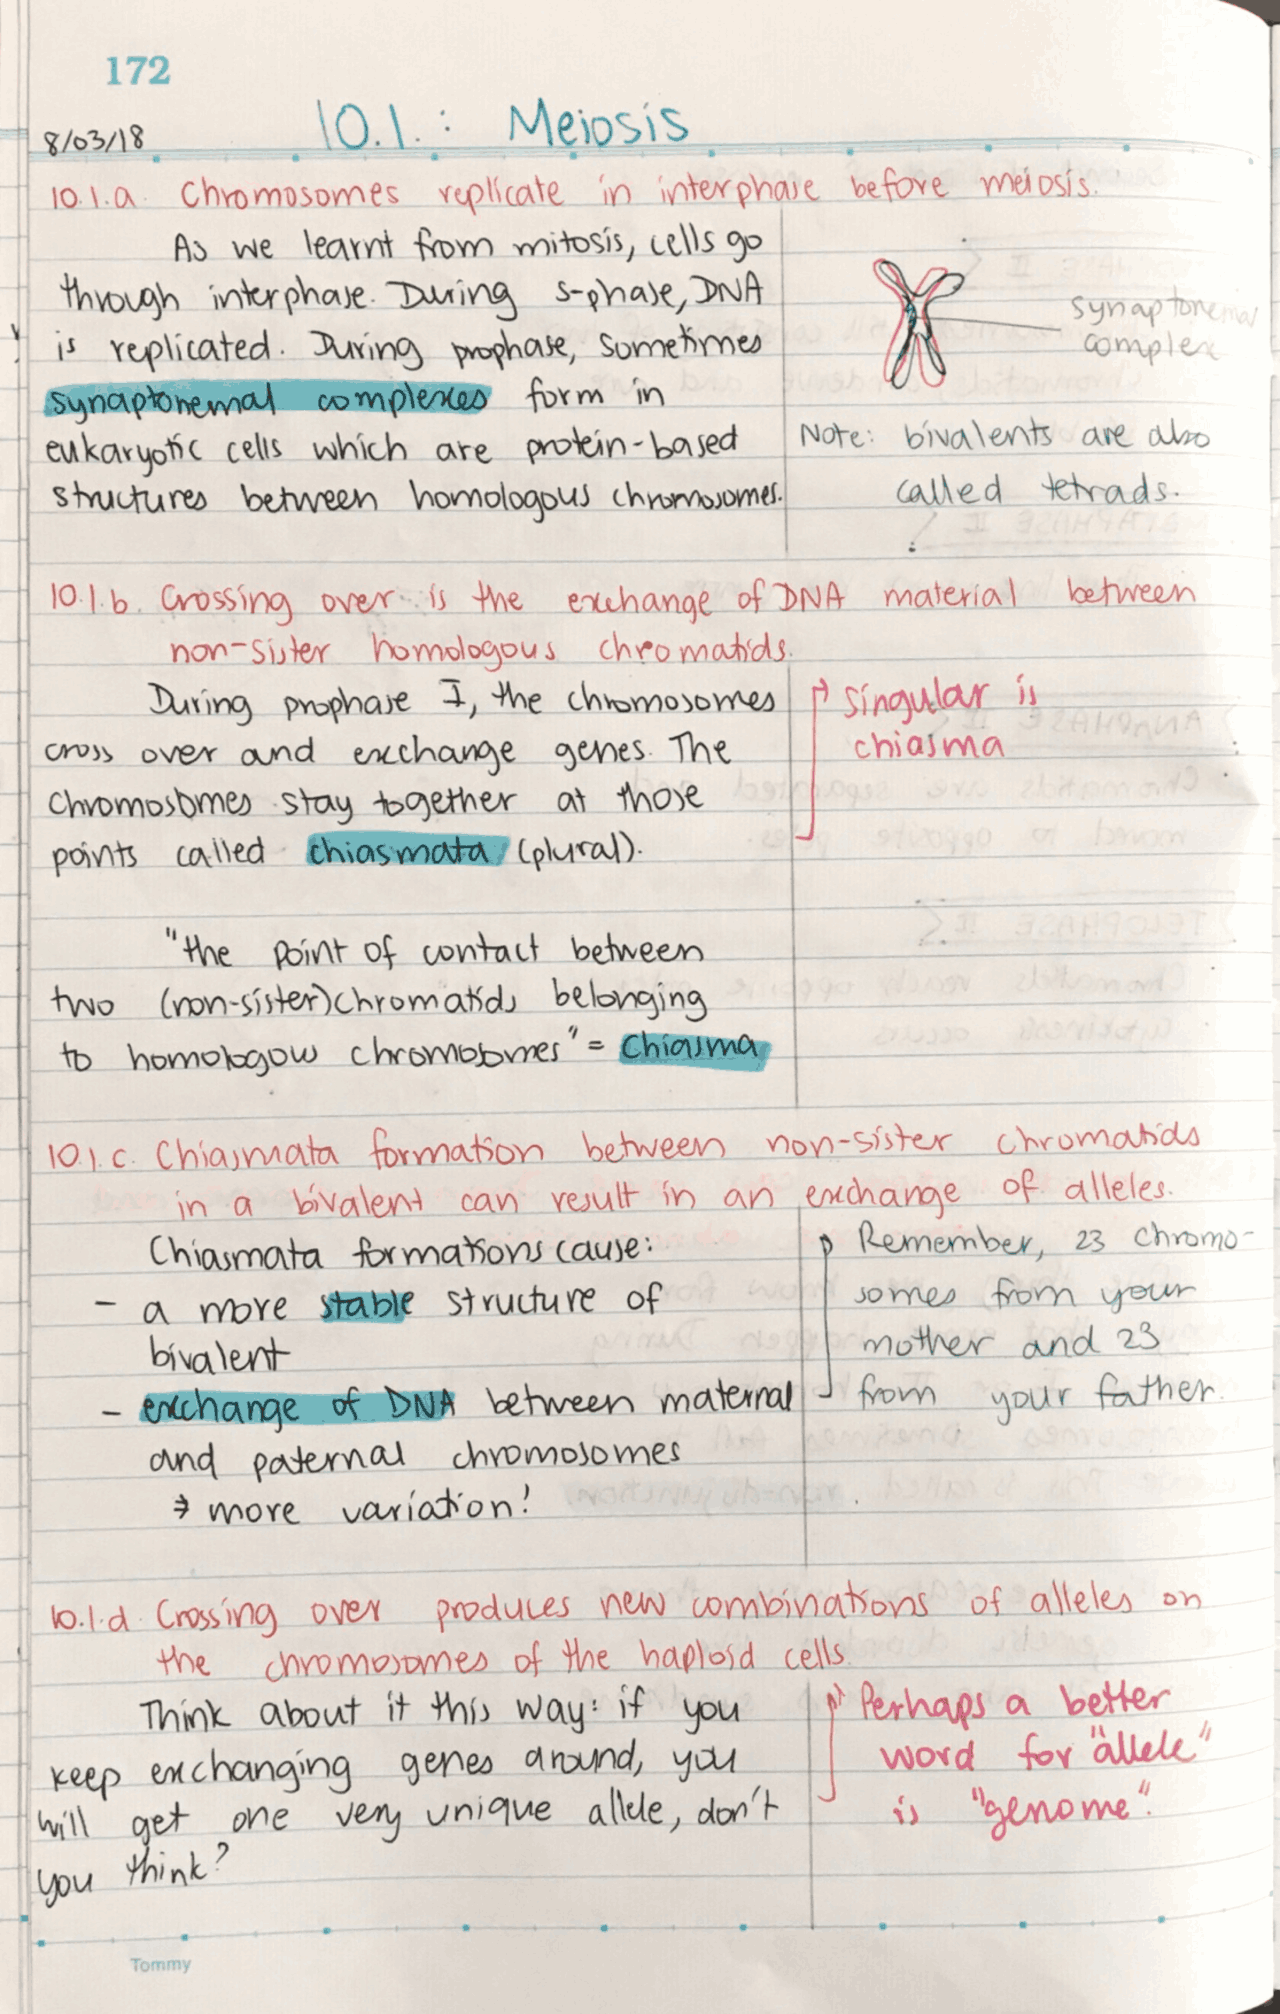 172
8/03/18
10.1.: Meiosis
10.1.a. Chromosomes replicate in interphase before meiosis.
As we learnt from mitosis, cells go
through interphase. During s-phase, DNA
is replicated. During prophase, sometimes
synaptonemal complexes form in
eukaryotic cells which are protein-based
structures between homologous chromosomes.
synaptonemal
complex
Note: bivalents are also
called tetrads.
10.1.b. Crossing over is the exchange of DNA material between
non-sister homologous chromatids.
During prophase I, the chromosomes
cross over and exchange genes. The
chromosomes stay together at those
points called chiasmata (plural).
singular is
chiasma
"the point of contact between
two (non-sister) chromatids belonging
to homologous chromosomes" = chiasma
10.1.c. Chiasmata formation between non-sister chromatids
in a bivalent can result in an exchange of alleles.
Chiasmata formations cause:
- a more stable structure of
bivalent
- exchange of DNA between maternal
and paternal chromosomes
→ more variation!
Remember, 23 chromo-
somes from your
mother and 23
from your father.
10.1.d. Crossing over produces new combinations of alleles on
the chromosomes of the haploid cells.
Think about it this way: if you
keep exchanging genes around, you
will get one very unique allele, don't
you think?
Perhaps a better
word for "allele"
is "genome".
Tommy